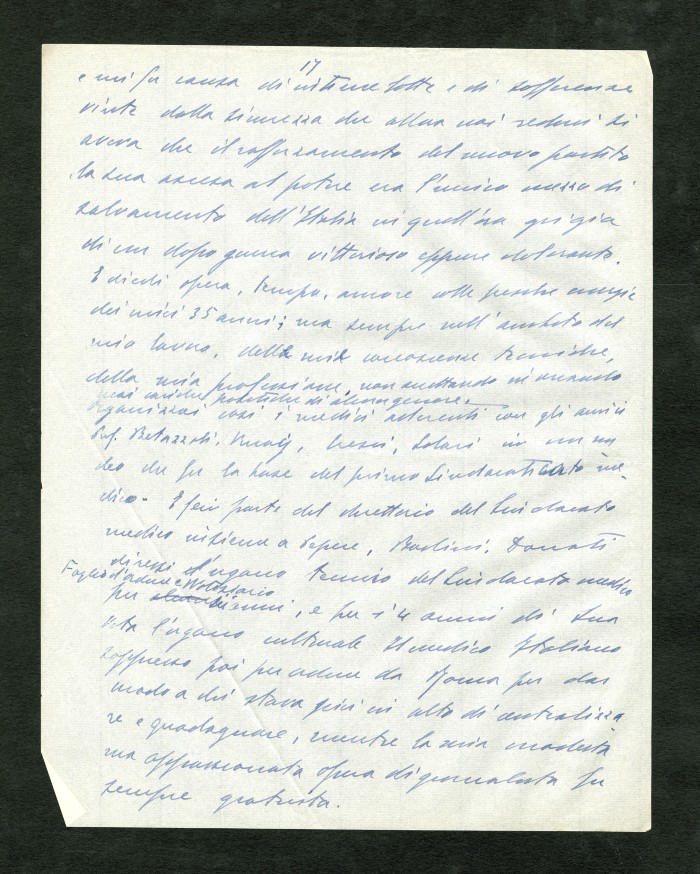 17
e mi fu causa di vittime lotte e di sofferenze
vinte dalla sicurezza che allora noi reduci si
aveva che il rafforzamento del nuovo partito
la sua ascesa al potere era l'unico mezzo di
salvamento dell'Italia in quell'ora grigia
di un dopo guerra vittorioso eppure
E diedi opera, tempo, amore colle fresche energie
dei miei 35 anni; ma sempre nell'ambito del
mio lavoro, delle mie conoscenze tecniche,
della mia professione, non accettando in
mai cariche politiche di alcun genere.
Organizzai così i medici aderenti con gli amici
Prof. Cresci, Solari in un nu
cleo che fu la base del primo Sindacato me
dico. E feci parte del direttorio del Sindacato
medico insieme a Pepere, Donati
diressi l'organo tecnico del Sindacato medico
Foglio d'ordini e Notiziario
per anni, e per i 4 anni di sua
vita l'organo culturale Il medico Italiano
soppresso poi per ordine da Roma per dar
modo a chi stava più in alto di centralizza
re e guadagnare, mentre la mia modesta
ma appassionata opera di giornalista fu
sempre gratuita.